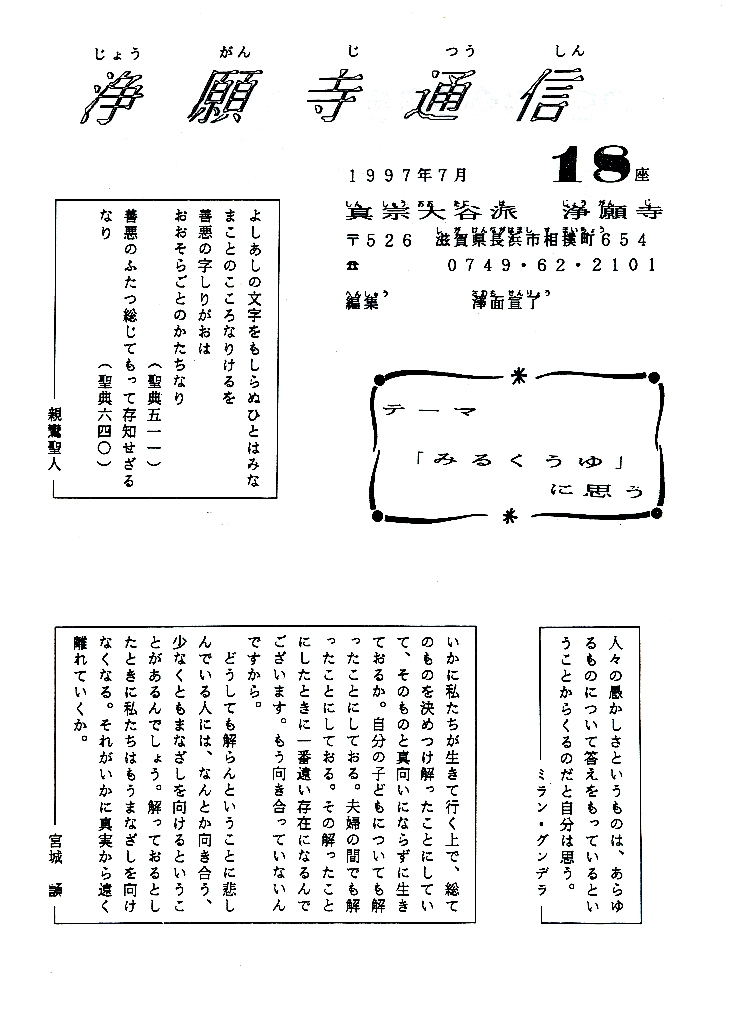 じょう がん じ つう しん
浄願寺通信
1997年7月 18座
真宗大谷派 浄願寺
〒526 滋賀県長浜市相撲町654
☎ 0749・62・2101
編集 澤面宣了
テーマ
「みるくうゆ」
に思う
よしあしの文字をもしらぬひとはみな
まことのこころなりけるを
善悪の字しりがおは
おおそらごとのかたちなり
(聖典五一一)
善悪のふたつ総じてもって存知せざる
なり
(聖典六四〇)
親鸞聖人
人々の愚かしさというものは、あらゆ
るものについて答えをもっているとい
うことからくるのだと自分は思う。
ミラン・グンデラ
いかに私たちが生きて行く上で、総て
のものを決めつけ解ったことにしてい
て、そのものと真向いにならずに生き
ておるか。自分の子どもについても解
ったことにしておる。夫婦の間でも解
ったことにしておる。その解ったこと
にしたときに一番遠い存在になるんで
ございます。もう向き合っていないん
ですから。
どうしても解らんということに悲し
んでいる人には、なんとか向き合う、
少なくともまなざしを向けるというこ
とがあるんでしょう。解っておるとし
たときに私たちはもうまなざしを向け
なくなる。それがいかに真実から遠く
離れていくか。
宮城 顗